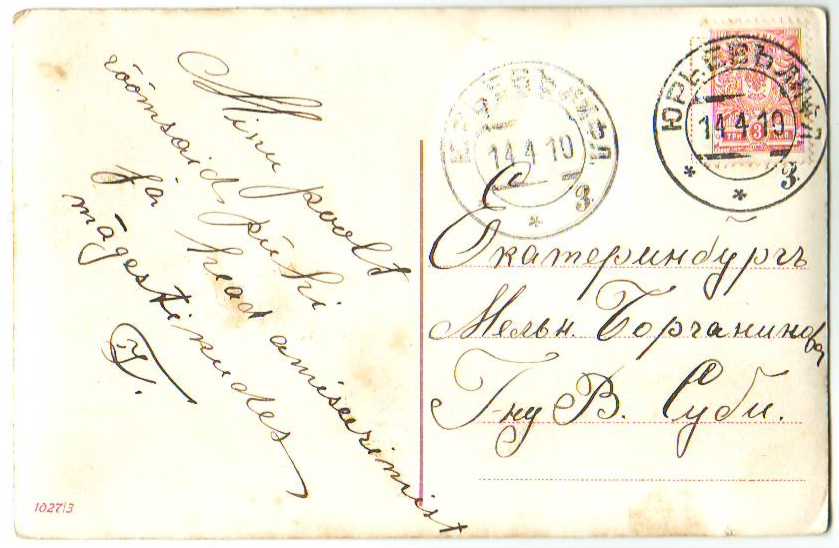 Minu poolt
rõõmsaid pühi
ja head amiseerimist
mägestikudes
T.
ЮРЬЕВЪ ЛИФЛ
14 4 10
З
ЮРЬЕВЪ ЛИФЛ
14 4 10
З
3
Екатеринбургъ
Мельн. Борчанинова
Г-ну В. Суби.
10273